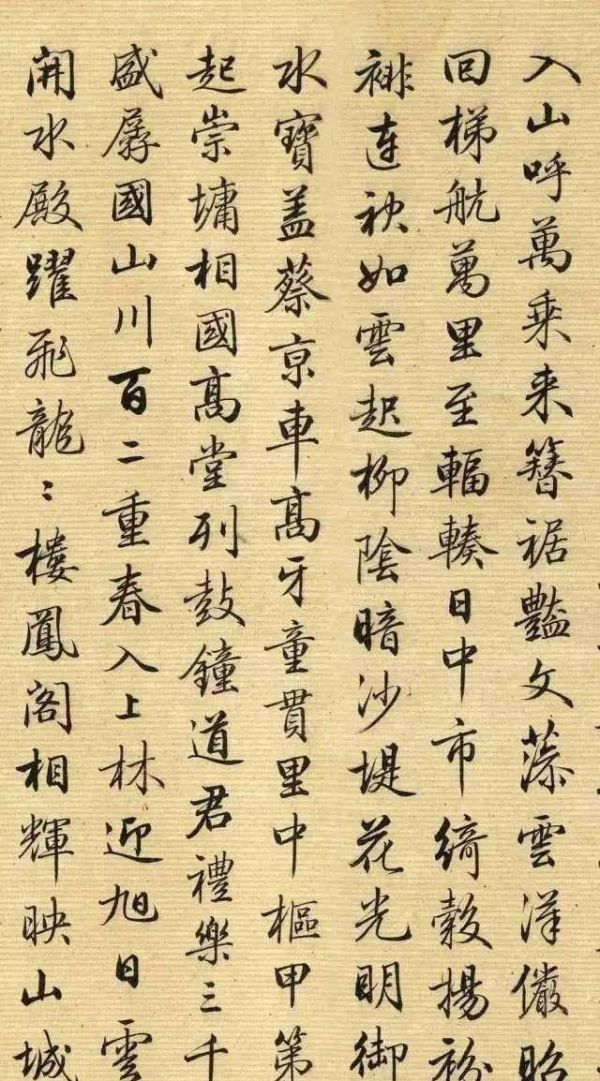 入山呼萬乘来簪裾豔文藻雲漢儼昭
回梯航萬里至輻輳日中市綺縠揚衯
裶連袂如雲起柳陰暗沙堤花光明御
水寶盖蔡京車高牙童貫里中樞甲第
起崇墉相國高堂列鼓鐘道君禮樂三千
盛孱國山川百二重春入上林迎旭日雲
開水殿躍飛龍〻樓鳳閣相輝映山城